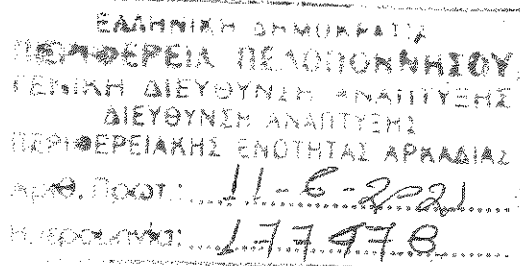 ΕΛΛΗΝΙΚΗ ΔΗΜΟΚΡΑΤΙΑ
ΠΕΡΙΦΕΡΕΙΑ ΠΕΛΟΠΟΝΝΗΣΟΥ
ΓΕΝΙΚΗ ΔΙΕΥΘΥΝΣΗ ΑΝΑΠΤΥΞΗΣ
ΔΙΕΥΘΥΝΣΗ ΑΝΑΠΤΥΞΗΣ
ΠΕΡΙΦΕΡΕΙΑΚΗΣ ΕΝΟΤΗΤΑΣ ΑΡΚΑΔΙΑΣ
Αριθ. Πρωτ.: 11-6-2021
Ημερομηνία: 177478